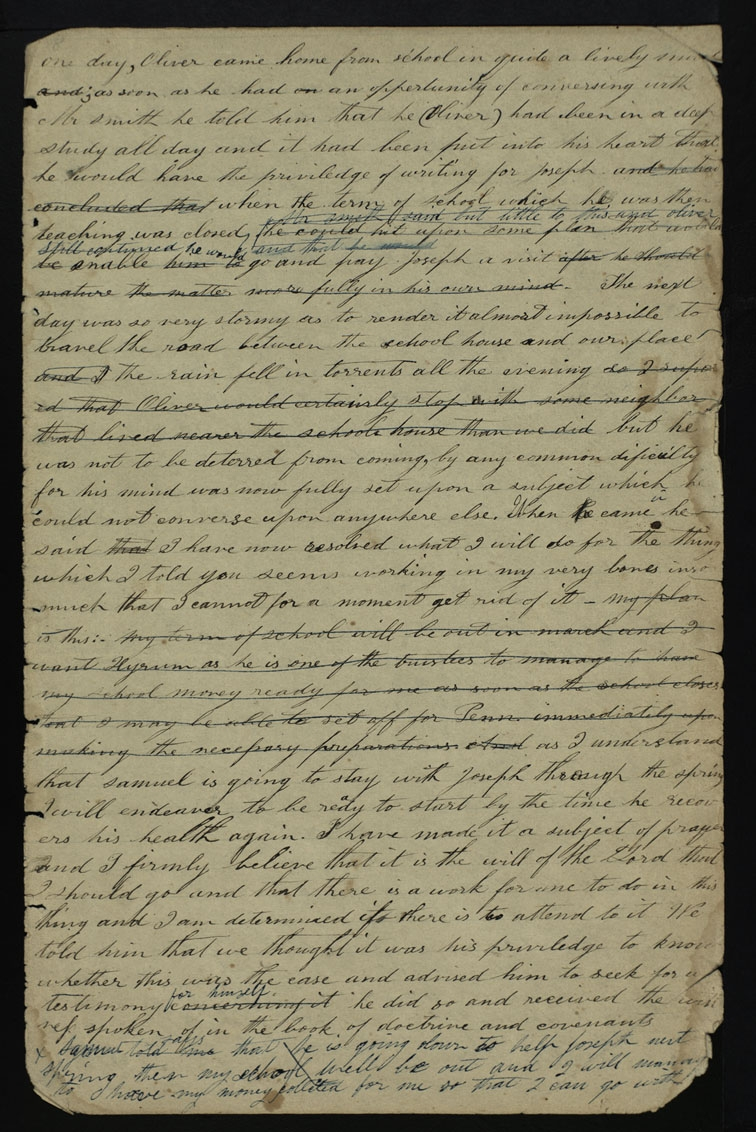 One day, Oliver came home from school in quite a lively
and; as soon as he had on an oppertunity of conversing with
Mr smith he told him that he (Oliver) had been in a deep
study all day and it had been put into his heart that
he would have the priviledge of writing for Joseph. and he had
concluded that when the term of school which he was then
Mr smith said but little to this and oliver
teaching was closed, he could hit upon some plan that would
still continued he would and that he would
be enable him to go and pay Joseph a visit after he should
mature the matter more fully in his own mind. The next
day was so very stormy as to render it almost impossible to
travel the road between the school house and our place
and I the rain fell in torrents all the evening so I supo
ed that Oliver would certainly stop with some neighbor
that lived nearer the school house than we did but he
was not to be deterred from coming, by any common dificulty
for his mind was now fully set upon a subject which he
could not converse upon anywhere else. When he came in he
said that I have now resolved what I will do for the thing
which I told you seems working in my very bones inso
much that I cannot for a moment get rid of it – my plan
is this:- my term of school will be out in march and I
want Hyrum as he is one of the trustees to manage to have
my school money ready for me as soon as the school closes
that I may be able to set off for Penn. immediately upon
making the necessary preparations And as I understand
that samuel is going to stay with Joseph through the spring
I will endeavor to be ready to start by the time he recov
ers his health again. I have made it a subject of prayer
and I firmly believe that it is the will of the Lord that
I should go and that there is a work for me to do in this
thing and I am determined if there is to attend to it We
told him that we thought it was his priviledge to know
whether this was the case and advised him to seek for a
for himself.
testimony concerning it he did so and received the
spoken of in the book of doctrine and covenants
x Samuel told me that he is going down to help Joseph next
spring then my school will be out and I will manage
to have my money collected for me so that I can go with